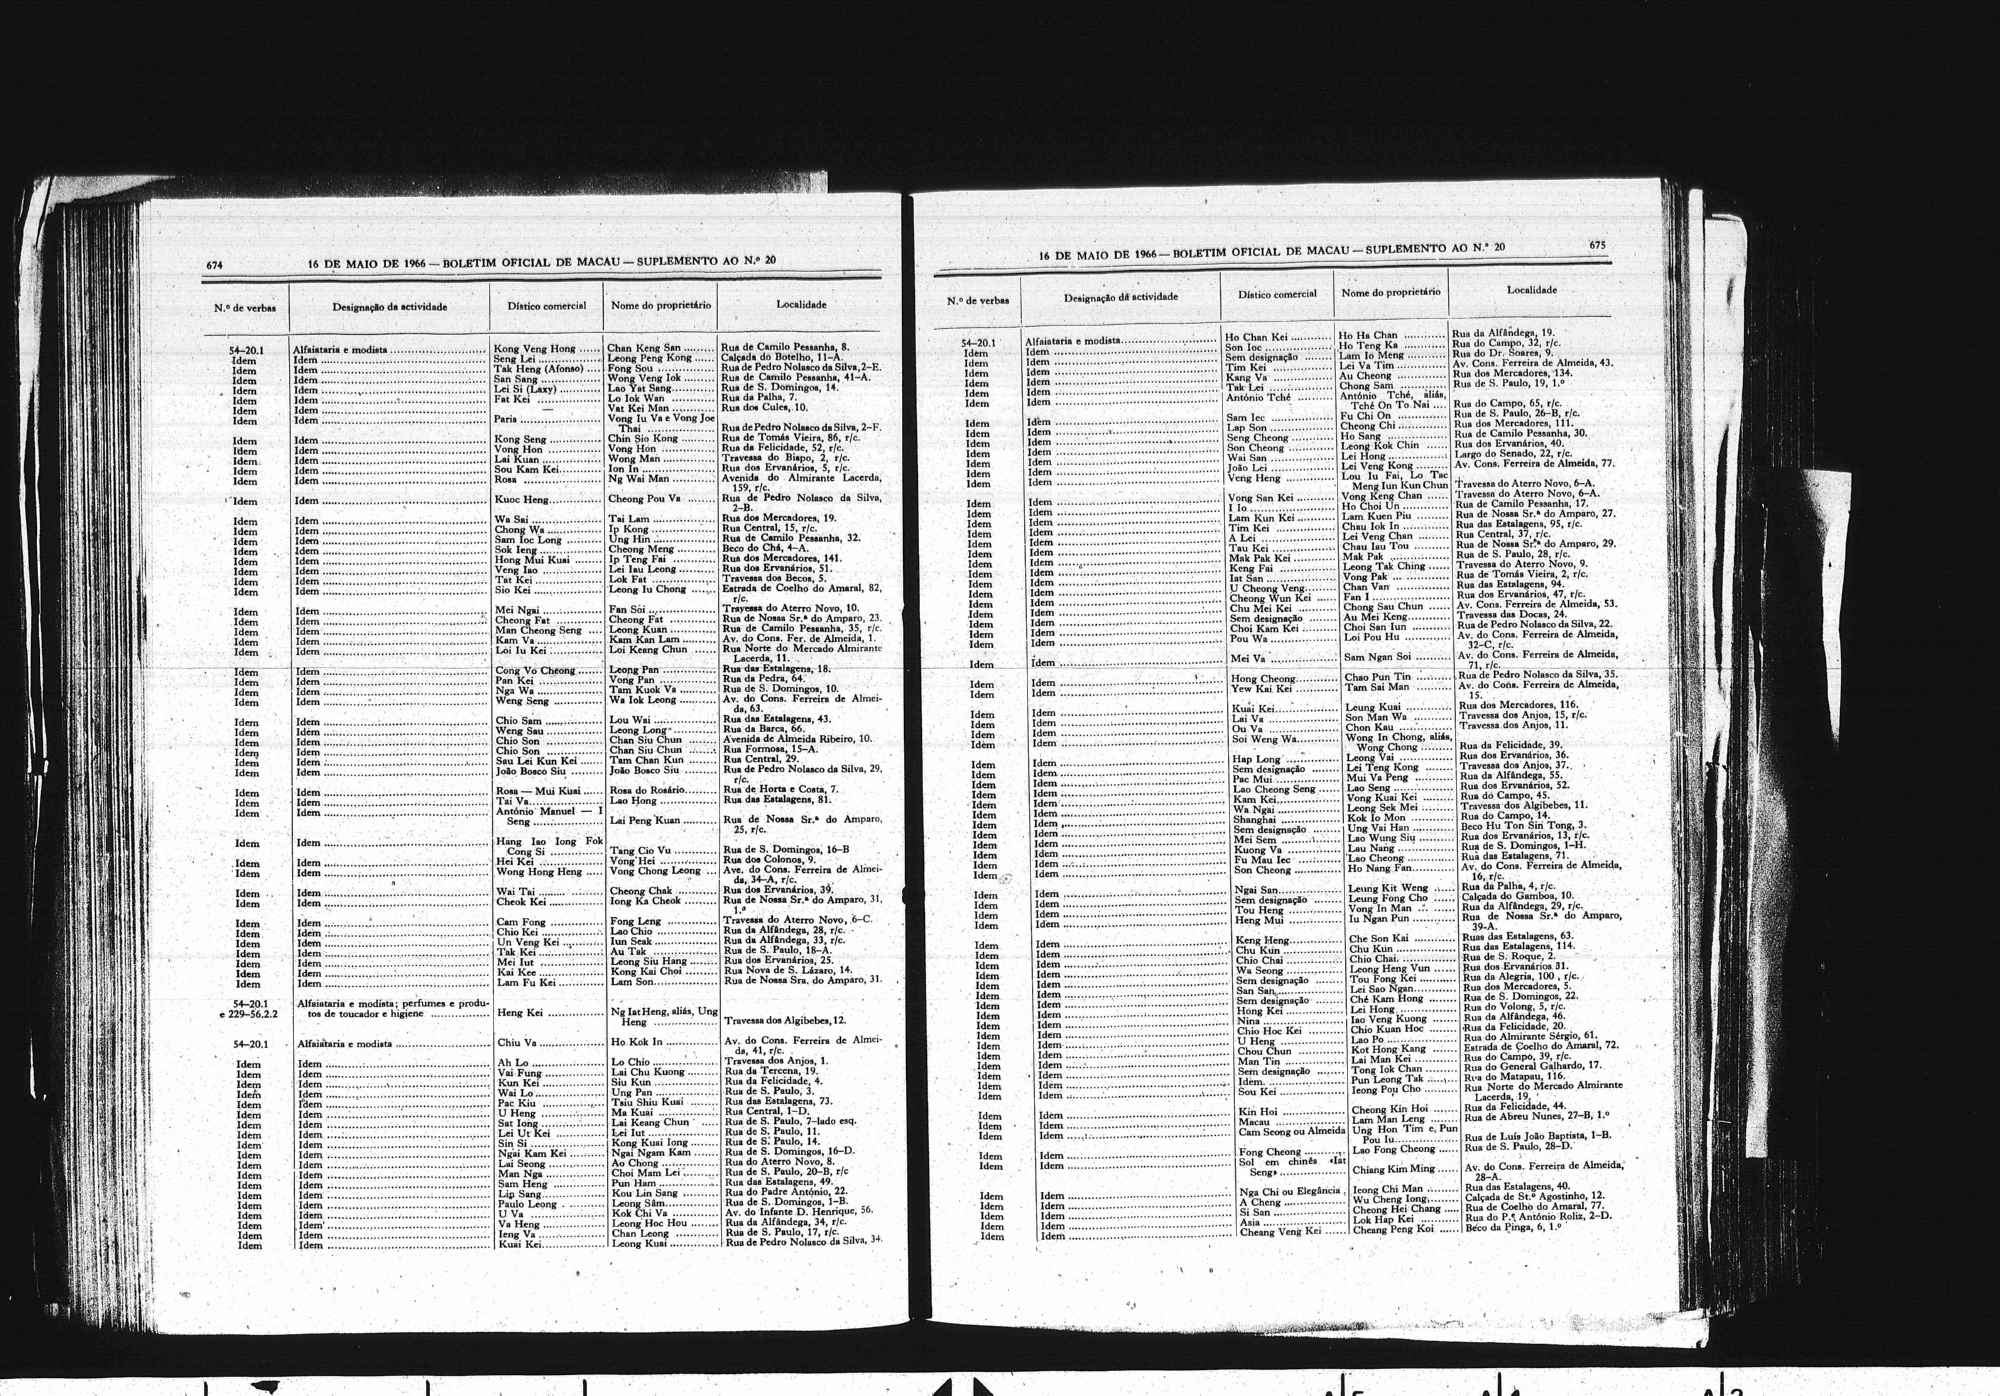 674
16 DE MAIO DE 1966 — BOLETIM OFICIAL DE MACAU — SUPLEMENTO AO N.º 20
N.º de verbas Designação da actividade Dístico comercial Nome do proprietário Localidade
54–20.1 Alfaiataria e modista Kong Veng Hong Chan Keng San Rua de Camilo Pessanha, 8.
Idem Idem Seng Lei Leong Peng Kong Calçada do Botelho, 11–A.
Idem Idem Tak Heng (Afonso) Fong Sou Rua de Pedro Nolasco da Silva, 2–E.
Idem Idem San Sang Wong Veng Iok Rua de Camilo Pessanha, 41–A.
Idem Idem Lei Si (Laxy) Lao Yat Sang Rua de S. Domingos, 14.
Idem Idem Fat Kei Lo Iok Wan Rua da Palha, 7.
Idem Idem — Vat Kei Man Rua dos Cules, 10.
Idem Idem Paris Vong Iu Va e Vong Joe
Thai Rua de Pedro Nolasco da Silva, 2–F.
Idem Idem Kong Seng Chin Sio Kong Rua de Tomás Vieira, 86, r/c.
Idem Idem Vong Hon Vong Hon Rua da Felicidade, 52, r/c.
Idem Idem Lai Kuan Wong Man Travessa do Bispo, 2, r/c.
Idem Idem Sou Kam Kei Ion In Rua dos Ervanários, 5, r/c.
Idem Idem Rosa Ng Wai Man Avenida do Almirante Lacerda,
159, r/c.
Idem Idem Kuoc Heng Cheong Pou Va Rua de Pedro Nolasco da Silva,
2–B.
Idem Idem Wa Sai Tai Lam Rua dos Mercadores, 19.
Idem Idem Chong Wa Ip Kong Rua Central, 15, r/c.
Idem Idem Sam Ioc Long Ung Hin Rua de Camilo Pessanha, 32.
Idem Idem Sok Ieng Cheong Meng Beco do Chá, 4–A.
Idem Idem Hong Mui Kuai Ip Teng Fai Rua dos Mercadores, 141.
Idem Idem Veng Iao Lei Iau Leong Rua dos Ervanários, 51.
Idem Idem Tat Kei Lok Fat Travessa dos Becos, 5.
Idem Idem Sio Kei Leong Iu Chong Estrada de Coelho do Amaral, 82,
r/c.
Idem Idem Mei Ngai Fan Soi Travessa do Aterro Novo, 10.
Idem Idem Cheong Fat Cheong Fat Rua de Nossa Sr.ª do Amparo, 23.
Idem Idem Man Cheong Seng Leong Kuan Rua de Camilo Pessanha, 35, r/c.
Idem Idem Kam Va Kam Kan Lam Av. do Cons. Fer. de Almeida, 1.
Idem Idem Loi Iu Kei Loi Keang Chun Rua Norte do Mercado Almirante
Lacerda, 11.
Idem Idem Cong Vo Cheong Leong Pan Rua das Estalagens, 18.
Idem Idem Pan Kei Vong Pan Rua da Pedra, 64.
Idem Idem Nga Wa Tam Kuok Va Rua de S. Domingos, 10.
Idem Idem Weng Seng Wa Iok Leong Av. do Cons. Ferreira de Almei-
da, 63.
Idem Idem Chio Sam Lou Wai Rua das Estalagens, 43.
Idem Idem Weng Sau Leong Long Rua da Barca, 66.
Idem Idem Chio Son Chan Siu Chun Avenida de Almeida Ribeiro, 10.
Idem Idem Chio Son Chan Siu Chun Rua Formosa, 15–A.
Idem Idem Sau Lei Kun Kei Tam Chan Kun Rua Central, 29.
Idem Idem João Bosco Siu João Bosco Siu Rua de Pedro Nolasco da Silva, 29,
r/c.
Idem Idem Rosa — Mui Kuai Rosa do Rosário Rua de Horta e Costa, 7.
Idem Idem Tai Va Lao Hong Rua das Estalagens, 81.
Idem Idem António Manuel — I
Seng Lai Peng Kuan Rua de Nossa Sr.ª do Amparo,
25, r/c.
Idem Idem Hang Iao Iong Fok
Cong Si Tang Cio Vu Rua de S. Domingos, 16–B
Idem Idem Hei Kei Vong Hei Rua dos Colonos, 9.
Idem Idem Wong Hong Heng Vong Chong Leong Ave. do Cons. Ferreira de Almei-
da, 34–A, r/c.
Idem Idem Wai Tai Cheong Chak Rua dos Ervanários, 39.
Idem Idem Cheok Kei Iong Ka Cheok Rua de Nossa Sr.ª do Amparo, 31,
1.º
Idem Idem Cam Fong Fong Leng Travessa do Aterro Novo, 6–C.
Idem Idem Chio Kei Lao Chio Rua da Alfândega, 28, r/c.
Idem Idem Un Veng Kei Iun Seak Rua da Alfândega, 33, r/c.
Idem Idem Tak Kei Au Tak Rua de S. Paulo, 18–A.
Idem Idem Mei Iut Leong Siu Hang Rua dos Ervanários, 25.
Idem Idem Kai Kee Kong Kai Choi Rua Nova de S. Lázaro, 14.
Idem Idem Lam Fu Kei Lam Son Rua de Nossa Sra. do Amparo, 31.
54–20.1 Alfaiataria e modista; perfumes e produ-
e 229–56.2.2 tos de toucador e higiene Heng Kei Ng Iat Heng, aliás, Ung
Heng Travessa dos Algibebes, 12.
54–20.1 Alfaiataria e modista Chiu Va Ho Kok In Av. do Cons. Ferreira de Almei-
da, 41, r/c.
Idem Idem Ah Lo Lo Chio Travessa dos Anjos, 1.
Idem Idem Vai Fung Lai Chu Kuong Rua da Tercena, 19.
Idem Idem Kun Kei Siu Kun Rua da Felicidade, 4.
Idem Idem Wai Lo Ung Pan Rua de S. Paulo, 3.
Idem Idem Pac Kiu Tsiu Shiu Kuai Rua das Estalagens, 73.
Idem Idem U Heng Ma Kuai Rua Central, 1–D.
Idem Idem Sat Iong Lai Keang Chun Rua de S. Paulo, 7–lado esq.
Idem Idem Lei Ut Kei Lei Iut Rua de S. Paulo, 11.
Idem Idem Sin Si Kong Kuai Iong Rua de S. Paulo, 14.
Idem Idem Ngai Kam Kei Ngai Ngam Kam Rua de S. Domingos, 16–D.
Idem Idem Lai Seong Ao Chong Rua do Aterro Novo, 8.
Idem Idem Man Nga Choi Mam Lei Rua de S. Paulo, 20–B, r/c
Idem Idem Sam Heng Pun Ham Rua das Estalagens, 49.
Idem Idem Lip Sang Kou Lin Sang Rua do Padre António, 22.
Idem Idem Paulo Leong Leong Sâm Rua de S. Domingos, 1–B.
Idem Idem U Va Kok Chi Va Av. do Infante D. Henrique, 56.
Idem Idem Va Heng Leong Hoc Hou Rua da Alfândega, 34, r/c.
Idem Idem Ieng Va Chan Leong Rua de S. Paulo, 17, r/c.
Idem Idem Kuai Kei Leong Kuai Rua de Pedro Nolasco da Silva, 34.
16 DE MAIO DE 1966 — BOLETIM OFICIAL DE MACAU — SUPLEMENTO AO N.º 20
675
N.º de verbas Designação da actividade Dístico comercial Nome do proprietário Localidade
54–20.1 Alfaiataria e modista Ho Chan Kei Ho Ha Chan Rua da Alfândega, 19.
Idem Idem Son Ioc Ho Teng Ka Rua do Campo, 32, r/c.
Idem Idem Sem designação Lam Io Meng Rua do Dr. Soares, 9.
Idem Idem Tim Kei Lei Va Tim Av. Cons. Ferreira de Almeida, 43.
Idem Idem Kang Va Au Cheong Rua dos Mercadores, 134.
Idem Idem Tak Lei Chong Sam Rua de S. Paulo, 19, 1.º
Idem Idem António Tché António Tché, aliás,
Tché On To Nai Rua do Campo, 65, r/c.
Idem Idem Sam Iec Fu Chi On Rua de S. Paulo, 26–B, r/c.
Idem Idem Lap Son Cheong Chi Rua dos Mercadores, 111.
Idem Idem Seng Cheong Ho Sang Rua de Camilo Pessanha, 30.
Idem Idem Son Cheong Leong Kok Chin Rua dos Ervanários, 40.
Idem Idem Wai San Lei Hong Largo do Senado, 22, r/c.
Idem Idem João Lei Lei Veng Kong Av. Cons. Ferreira de Almeida, 77.
Idem Idem Veng Heng Lou Iu Fai, Lo Tac
Meng Iun Kun Chun Travessa do Aterro Novo, 6–A.
Idem Idem Vong San Kei Vong Keng Chan Travessa do Aterro Novo, 6–A.
Idem Idem I Io Ho Choi Un Rua de Camilo Pessanha, 17.
Idem Idem Lam Kun Kei Lam Kuen Piu Rua de Nossa Sr.ª do Amparo, 27.
Idem Idem Tim Kei Chau Iok In Rua das Estalagens, 95, r/c.
Idem Idem A Lei Lei Veng Chan Rua Central, 37, r/c.
Idem Idem Tau Kei Chau Iau Tou Rua de Nossa Sr.ª do Amparo, 29.
Idem Idem Mak Pak Kei Mak Pak Rua de S. Paulo, 28, r/c.
Idem Idem Keng Fai Leong Tak Ching Travessa do Aterro Novo, 9.
Idem Idem Iat San Vong Pak Rua de Tomás Vieira, 2, r/c.
Idem Idem U Cheong Veng Chan Van Rua das Estalagens, 94.
Idem Idem Cheong Wun Kei Fan I Rua dos Ervanários, 47, r/c.
Idem Idem Chu Mei Kei Chong Sau Chun Av. Cons. Ferreira de Almeida, 53.
Idem Idem Sem designação Au Mei Keng Travessa das Docas, 24.
Idem Idem Choi Kam Kei Choi San Iun Rua de Pedro Nolasco da Silva, 22.
Idem Idem Pou Wa Loi Pou Hu Av. do Cons. Ferreira de Almeida,
32–C, r/c.
Idem Idem Mei Va Sam Ngan Soi Av. do Cons. Ferreira de Almeida,
71, r/c.
Idem Idem Hong Cheong Chao Pun Tin Rua de Pedro Nolasco da Silva, 35.
Idem Idem Yew Kai Kei Tam Sai Man Av. do Cons. Ferreira de Almeida,
15.
Idem Idem Kuai Kei Leung Kuai Rua dos Mercadores, 116.
Idem Idem Lai Va Son Man Wa Travessa dos Anjos, 15, r/c.
Idem Idem Ou Va Chon Kau Travessa dos Anjos, 11.
Idem Idem Soi Weng Wa Wong In Chong, aliás,
Wong Chong Rua da Felicidade, 39.
Idem Idem Hap Long Leong Vai Rua dos Ervanários, 36.
Idem Idem Sem designação Lei Teng Kong Travessa dos Anjos, 37.
Idem Idem Pac Mui Mui Va Peng Rua da Alfândega, 55.
Idem Idem Lao Cheong Seng Lao Seng Rua dos Ervanários, 52.
Idem Idem Kam Kei Vong Kuai Kei Rua do Campo, 45.
Idem Idem Wa Ngai Leong Sek Mei Travessa dos Algibebes, 11.
Idem Idem Shanghai Kok Io Mon Rua do Campo, 14.
Idem Idem Sem designação Ung Vai Han Beco Hu Ton Sin Tong, 3.
Idem Idem Mei Sem Lao Wung Siu Rua dos Ervanários, 13, r/c.
Idem Idem Kuong Va Lau Nang Rua de S. Domingos, 1–H.
Idem Idem Fu Mau Iec Lao Cheong Rua das Estalagens, 71.
Idem Idem Son Cheong Ho Nang Fan Av. do Cons. Ferreira de Almeida,
16, r/c.
Idem Idem Ngai San Leung Kit Weng Rua da Palha, 4, r/c.
Idem Idem Sem designação Leung Fong Cho Calçada do Gamboa, 10.
Idem Idem Tou Heng Vong In Man Rua da Alfândega, 29, r/c.
Idem Idem Heng Mui Iu Ngan Pun Rua de Nossa Sr.ª do Amparo,
39-A.
Idem Idem Keng Heng Che Son Kai Ruas das Estalagens, 63.
Idem Idem Chu Kun Chu Kun Rua das Estalagens, 114.
Idem Idem Chio Chai Chio Chai. Rua de S. Roque, 2.
Idem Idem Wa Seong Leong Heng Vun Rua dos Ervanários 31.
Idem Idem Sem designação Tou Fong Kei Rua da Alegria, 100, r/c.
Idem Idem San San Lei Sao Ngan Rua dos Mercadores, 5.
Idem Idem Sem designação Ché Kam Hong Rua de S. Domingos, 22.
Idem Idem Hong Kei Lei Hong Rua do Volong, 5, r/c.
Idem Idem Nina Iao Veng Kuong Rua da Alfândega, 46.
Idem Idem Chio Hoc Kei Chio Kuan Hoc Rua da Felicidade, 20.
Idem Idem U Heng Lao Po Rua do Almirante Sérgio, 61.
Idem Idem Chou Chun Kot Hong Kang Estrada de Coelho do Amaral, 72.
Idem Idem Man Tin Lai Man Kei Rua do Campo, 39, r/c.
Idem Idem Sem designação Tong Iok Chan Rua do General Galhardo, 17.
Idem Idem Idem. Pun Leong Tak Rua do Matapau, 116.
Idem Idem Sou Kei Ieong Pou Cho Rua Norte do Mercado Almirante
Lacerda, 19,
Idem Idem Kin Hoi Cheong Kin Hoi Rua da Felicidade, 44.
Idem Idem Macau Lam Man Leng Rua de Abreu Nunes, 27–B, 1.º
Idem Idem Cam Seong ou Almeida Ung Hon Tim e Pun
Pou Iu Rua de Luís João Baptista, 1–B.
Idem Idem Fong Cheong Lao Fong Cheong Rua de S. Paulo, 28–D.
Idem Idem Sol em chinês «Iat
Seng» Chiang Kim Ming Av. do Cons. Ferreira de Almeida,
28–A.
Idem Idem Nga Chi ou Elegância Ieong Chi Man Rua das Estalagens, 40.
Idem Idem A Cheng Wu Cheng Iong Calçada de St.º Agostinho, 12.
Idem Idem Si San Cheong Hei Chang Rua de Coelho do Amaral, 77.
Idem Idem Asia Lok Hap Kei Rua do P.º António Roliz, 2–D.
Idem Idem Cheang Veng Kei Cheang Peng Koi Beco da Pinga, 6, 1.º